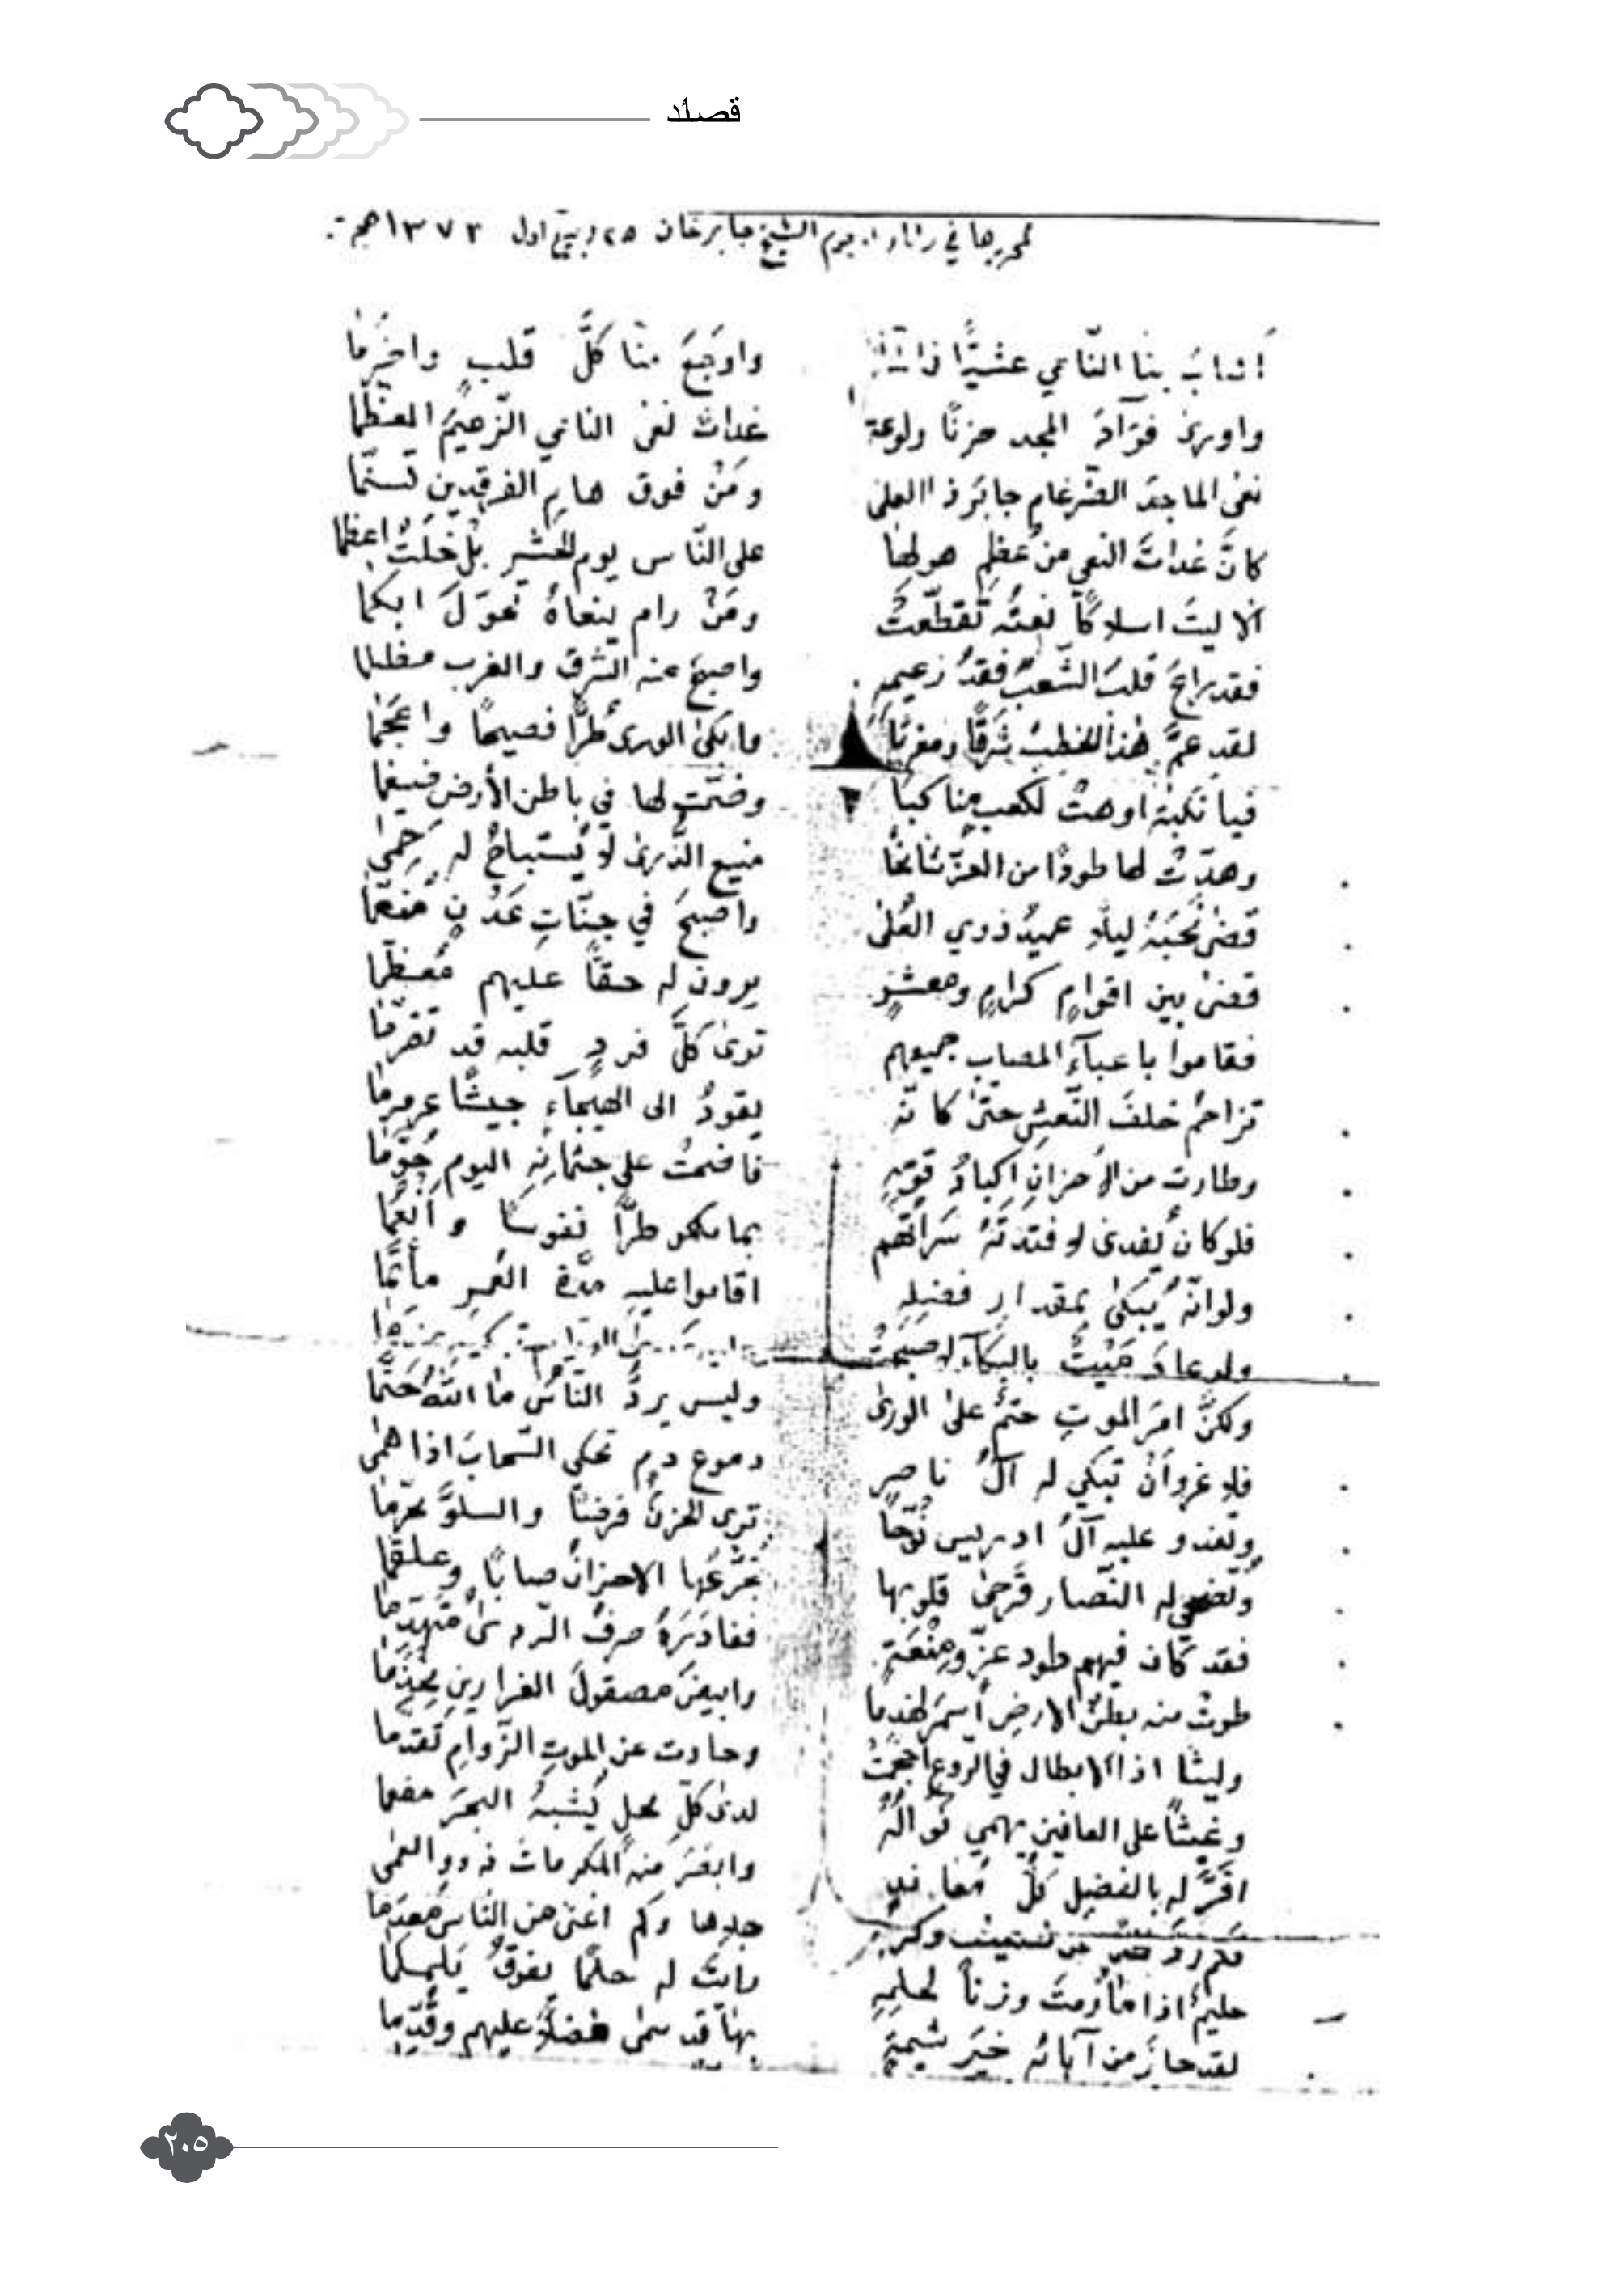 قصائد
لمحررها في رثاء المرحوم الشيخ جابرخان ٢٥ ربيع اول ١٣٧٣ هجرية
أهاب بنا النّاعي عشيًّا واوجَعَ منا كلَّ قلبٍ واضرَما
واورىٰ فؤآدَ المجد حزنًا ولوعة غداتَ نعىٰ الناعي الزّعيمَ المعظّما
نعىٰ الماجدَ الضّرغام جابرَ ذا العلىٰ ومَنْ فوق هامِ الفرقدين تسنّما
كانَّ غداتَ النعي من عُظمِ هولها على النّاس يوم الحشرِ بل خلتُ اعظما
ألا ليتَ اسلاكًا نعتهُ تقطّعتْ ومَنْ رام ينعاهُ تحوّلَ ابكما
فقد راعَ قلبَ الشّعبِ فقدُ زعيمهِ واصبحَ منه الشّرقُ والغربُ مظلما
لقد عمَّ هٰذا الخطبُ شرقًا ومغربًا وابكىٰ الورىٰ طرًّا فصيحًا واعجَما
فيا نكبة اوهتْ لكعبٍ مناكبا وضمّت لها في باطن الأرض ضيغما
وهدّتْ لها طودًا من العزّ شامخًا منيع الذّرىٰ لا يُستباحُ له حِمىٰ
قضىٰ نَحبَهُ ليلًا عميدُ ذوي العُلىٰ واصبحَ في جنّاتِ عَدْنٍ منعّما
قضىٰ بين اقوامٍ كرامٍ ومعشرٍ يرون له حقًّا عليهم مُعظّما
فقاموا باعبآءِ المصاب جميعهم ترىٰ كلَّ فردٍ قلبه قد تضرّما
تزاحمُ خلفَ النّعشِ حتّىٰ كانّه يقودُ الى الهيجآءِ جيشًا عرمرما
وطارت من الأحزانِ اكبادُ قومهِ فاضحتْ على جثمانِهِ اليوم حُوّما
فلو كان يُفدىٰ لافتدَتهُ سَراتُهم بما ملكوا طرًّا نفوسًا وأنعُما
ولو انّه يُبكىٰ بمقدارِ فضلِهِ اقاموا عليهِ مدّة العُمرِ مأتما
ولو عادَ مَيْتٌ بالبكآءِ لاصبحتْ
ولكنَّ امرَ الموتِ حتمٌ علىٰ الورىٰ وليس يردُّ النّاسُ ما اللّٰهُ حتّما
فلا غروَ أنْ تبكي له آلُ ناصرٍ دموع دمٍ تحكي السّحابَ اذا همىٰ
وتغدو عليه آلُ ادريس نُوّحًا ترىٰ الحزنَ فرضًا والسلوَّ محرّما
وتضحي له النّصار قرحىٰ قلوبها تجرّعُها الاحزانُ صابًا وعلقما
فقد كان فيهم طود عزٍّ ومنعةٍ فغادَرَهُ صرفُ الرّدىٰ متهدّما
طوتْ منه بطنُ الارضِ أسمرَ لهذما وابيضَ مصقولَ الغرارينِ مِخذَما
وليثًا اذا الابطال في الرّوعِ احجمتْ وحادت عن الموتِ الزّوامِ تقدّما
وغيثًا على العافين يهمي نوالُهُ لدىٰ كلِّ محلٍ يُشبهُ البحرَ مفعما
اقرَّ له بالفضلِ كلُّ مُعاندٍ وابصَرَ منهُ المكرماتِ ذوو العمىٰ
مستغيث وكربةٍ جلاها وكم اغنىٰ من النّاس مُعدَما
حليمٌ اذا ما رُمتَ وزنًا لحلمِهِ رايتَ له حلمًا يفوقُ يلملما
لقد حازَ من آبائه خيرَ شيمةٍ بها قد سمىٰ فضلًا عليهم وقُدّما
٢٠٥